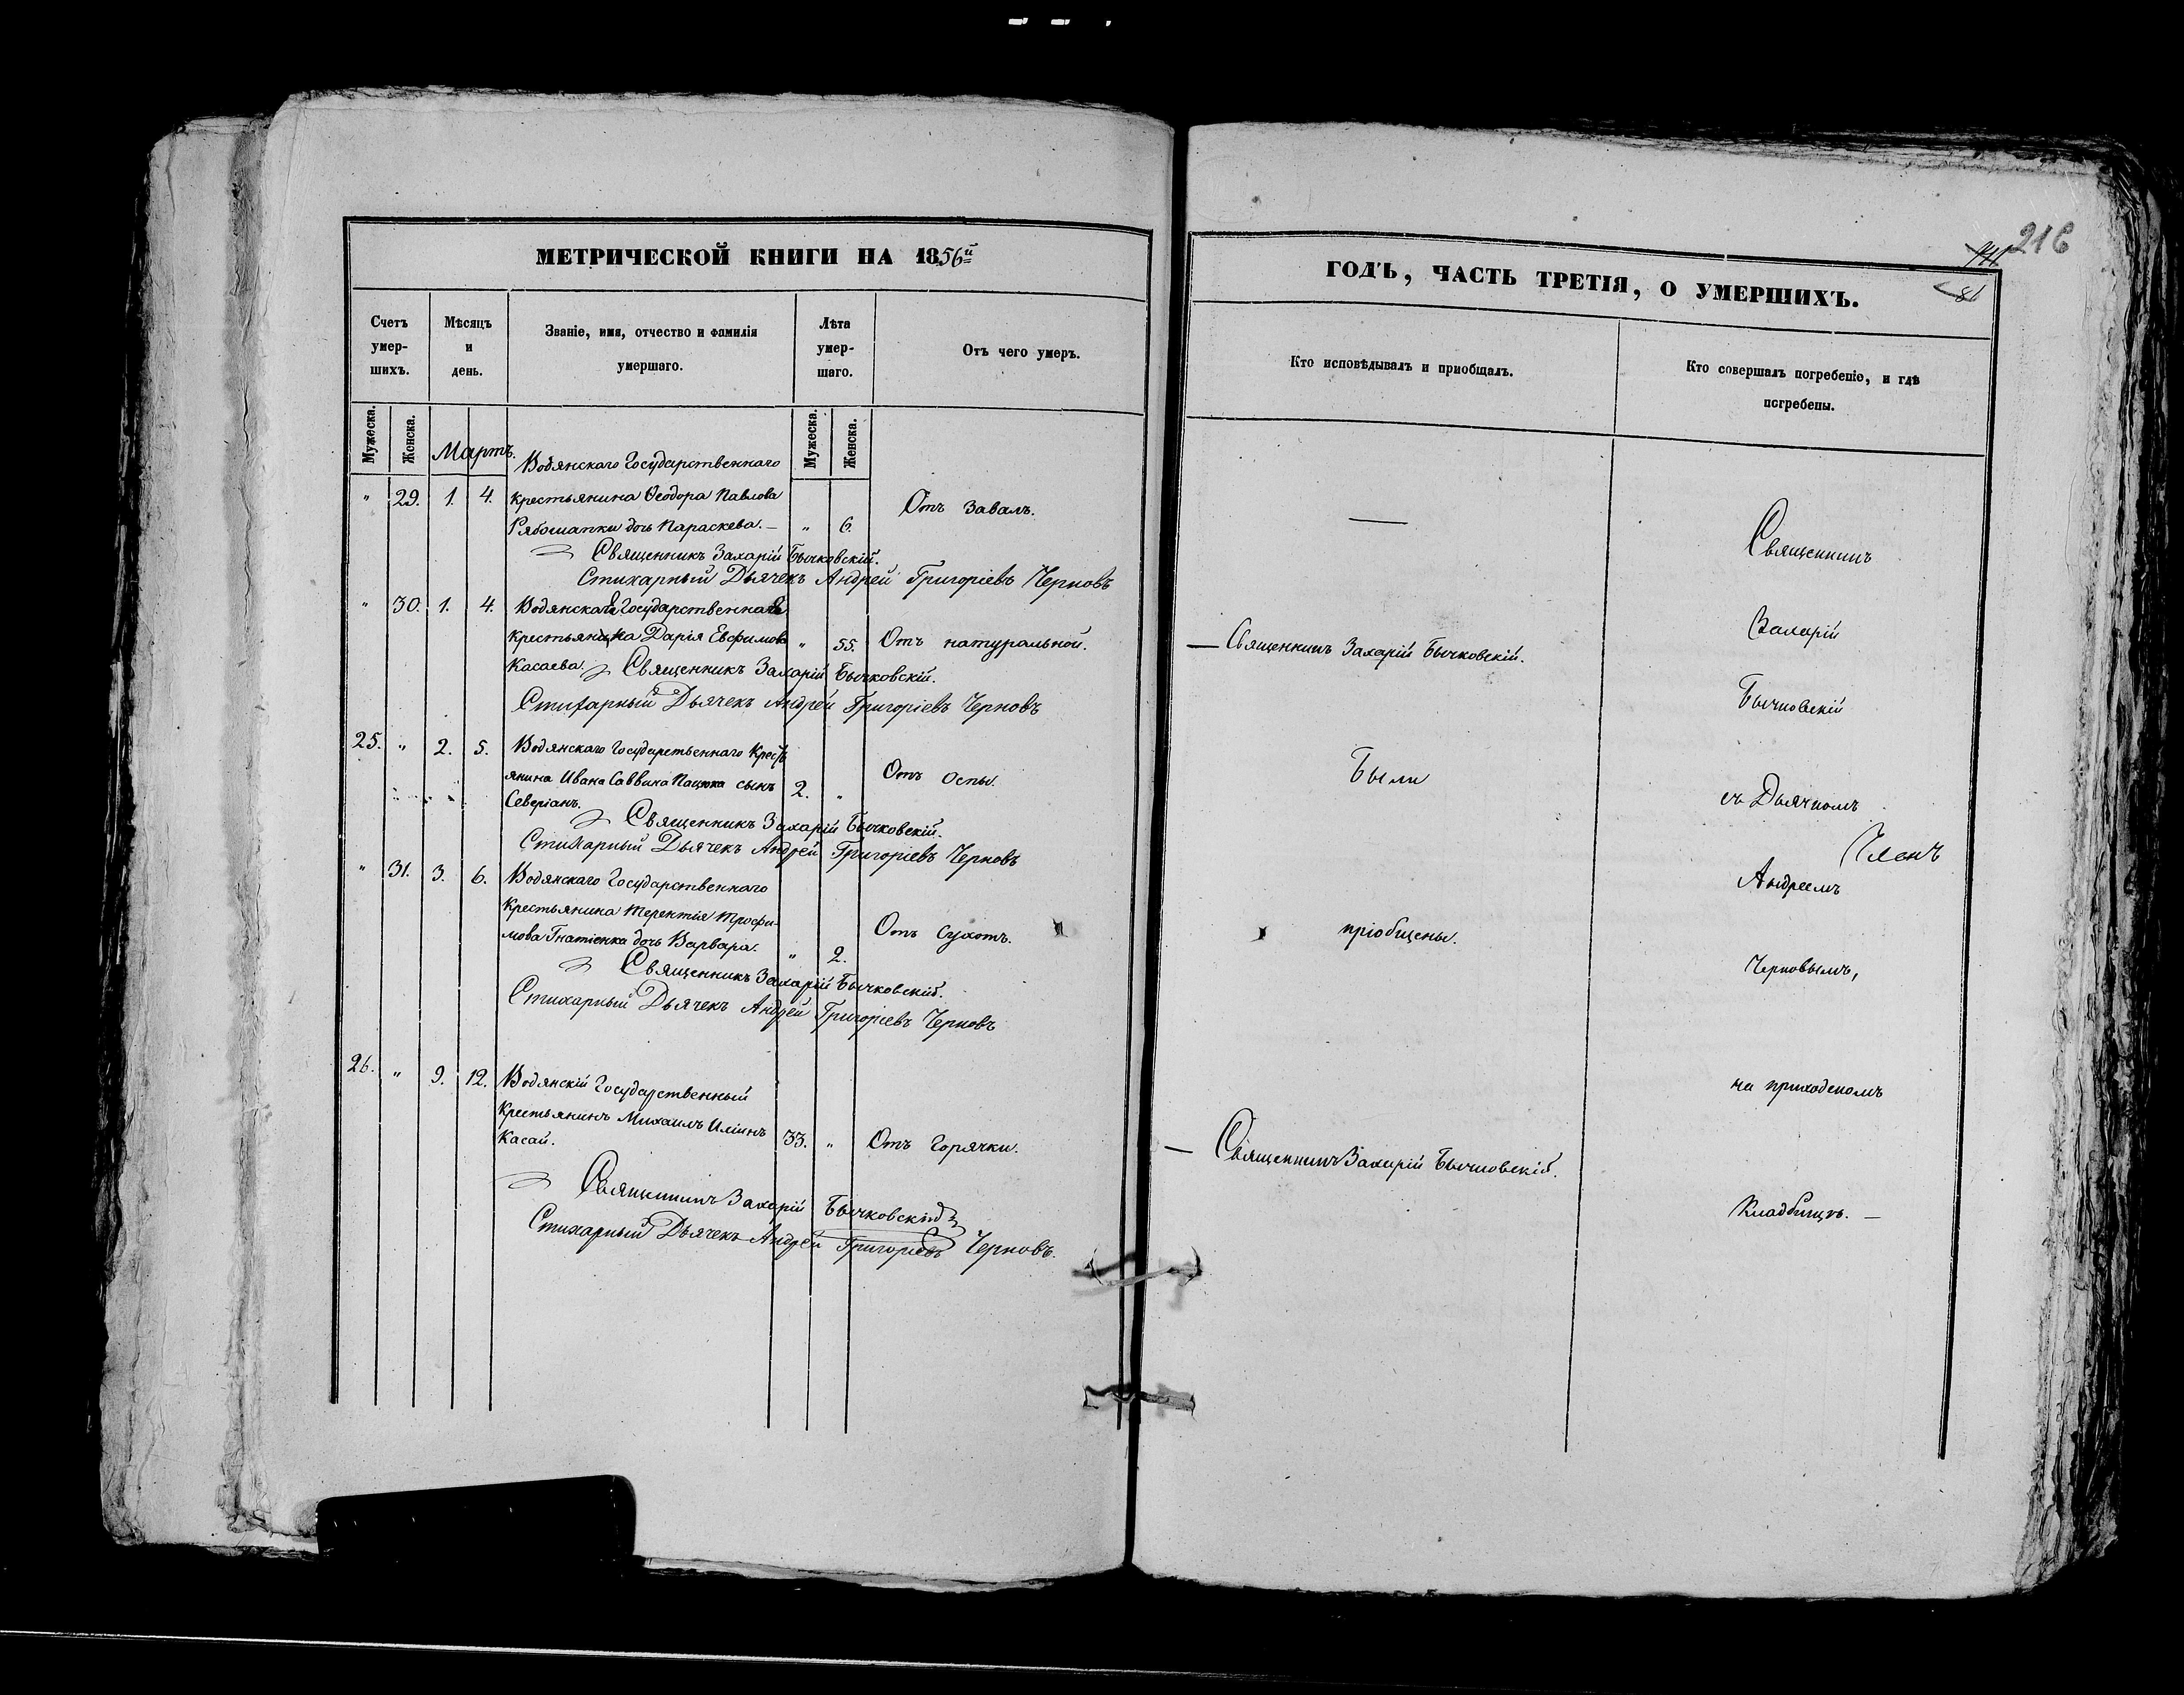 216
МЕТРИЧЕСКОЙ КНИГИ НА 1856й
Счетъ умер-шихъ.
Мѣсяцъ и день.
Званіе, имя, отчество и фамилія умершаго.
Лѣта умер-шаго.
Отъ чего умеръ.
Мужеска. Женска. Мартъ. Мужеска. Женска.
Водянскаго Государственнаго
" 29. 1. 4. крестьянина Ѳеодора Павлова Отъ завалъ.
Рябошапки дочь Параскева. — " 6.
Священникъ Захарій Бычковскій.
Стихарный Дьячекъ Андрей Григоріевъ Черновъ
" 30. 1. 4. Водянская Государственная
крестьянка Дарія Евфимова " 55. Отъ натуральной.
Касаева. Священникъ Захарій Бычковскій.
Стихарный Дьячекъ Андрей Григоріевъ Черновъ
25. " 2. 5. Водянскаго Государственнаго Кресть
янина Ивана Саввина Пацюка сынъ 2. " Отъ Оспы.
Северіанъ.
Священникъ Захарій Бычковскій.
Стихарный Дьячекъ Андрей Григоріевъ Черновъ
" 31. 3. 6. Водянскаго Государственнаго
Крестьянина Терентія Трофи-
мова Гнатіенка дочь Варвара. " 2. Отъ Сухотъ.
Священникъ Захарій Бычковскій.
Стихарный Дьячекъ Андрей Григоріевъ Черновъ
26. " 9. 12. Водянскій Государственный
Крестьянинъ Михаилъ Иліинъ
Касай. 33. " Отъ Горячки.
Священникъ Захарій Бычковскій
Стихарный Дьячекъ Андрей Григоріевъ Черновъ.
ГОДЪ, ЧАСТЬ ТРЕТІЯ, О УМЕРШИХЪ.
Кто исповѣдывалъ и пріобщалъ.
Кто совершалъ погребеніе, и гдѣ погребены.
—
— Священникъ Захарій Бычковскій.
Были
пріобщены.
— Священникъ Захарій Бычковскій.
Священникъ
Захарій
Бычковскій
съ Дьячкомъ
Членъ
Андреемъ
Черновымъ,
на приходскомъ
Кладбищѣ. —